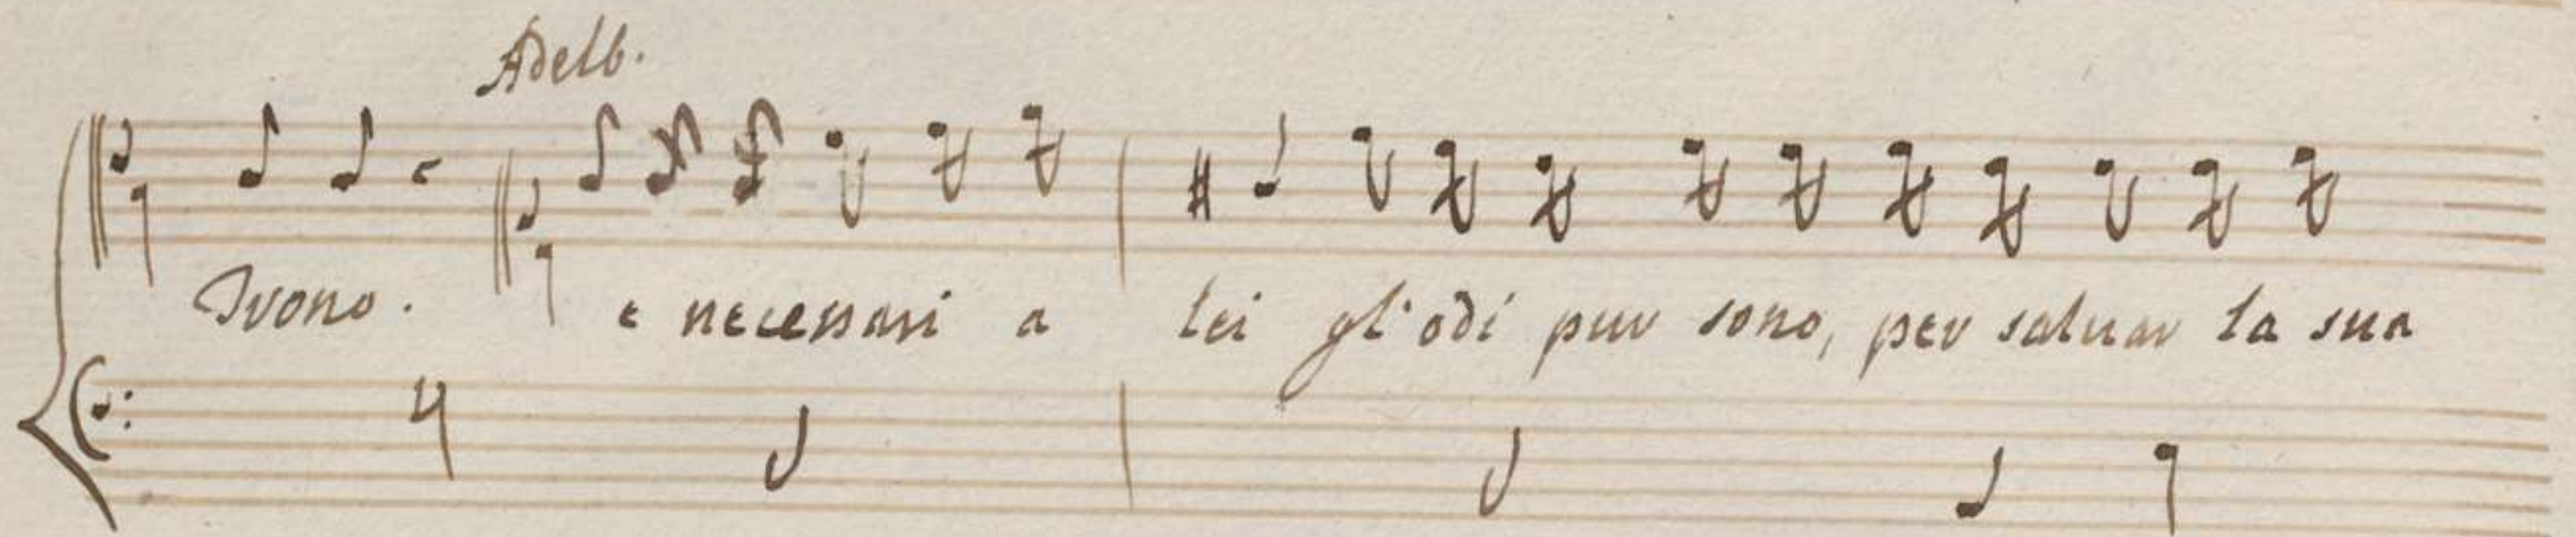 Adelb.
Trono. e necessari a lei gl'odi pur sono, per saluar la sua